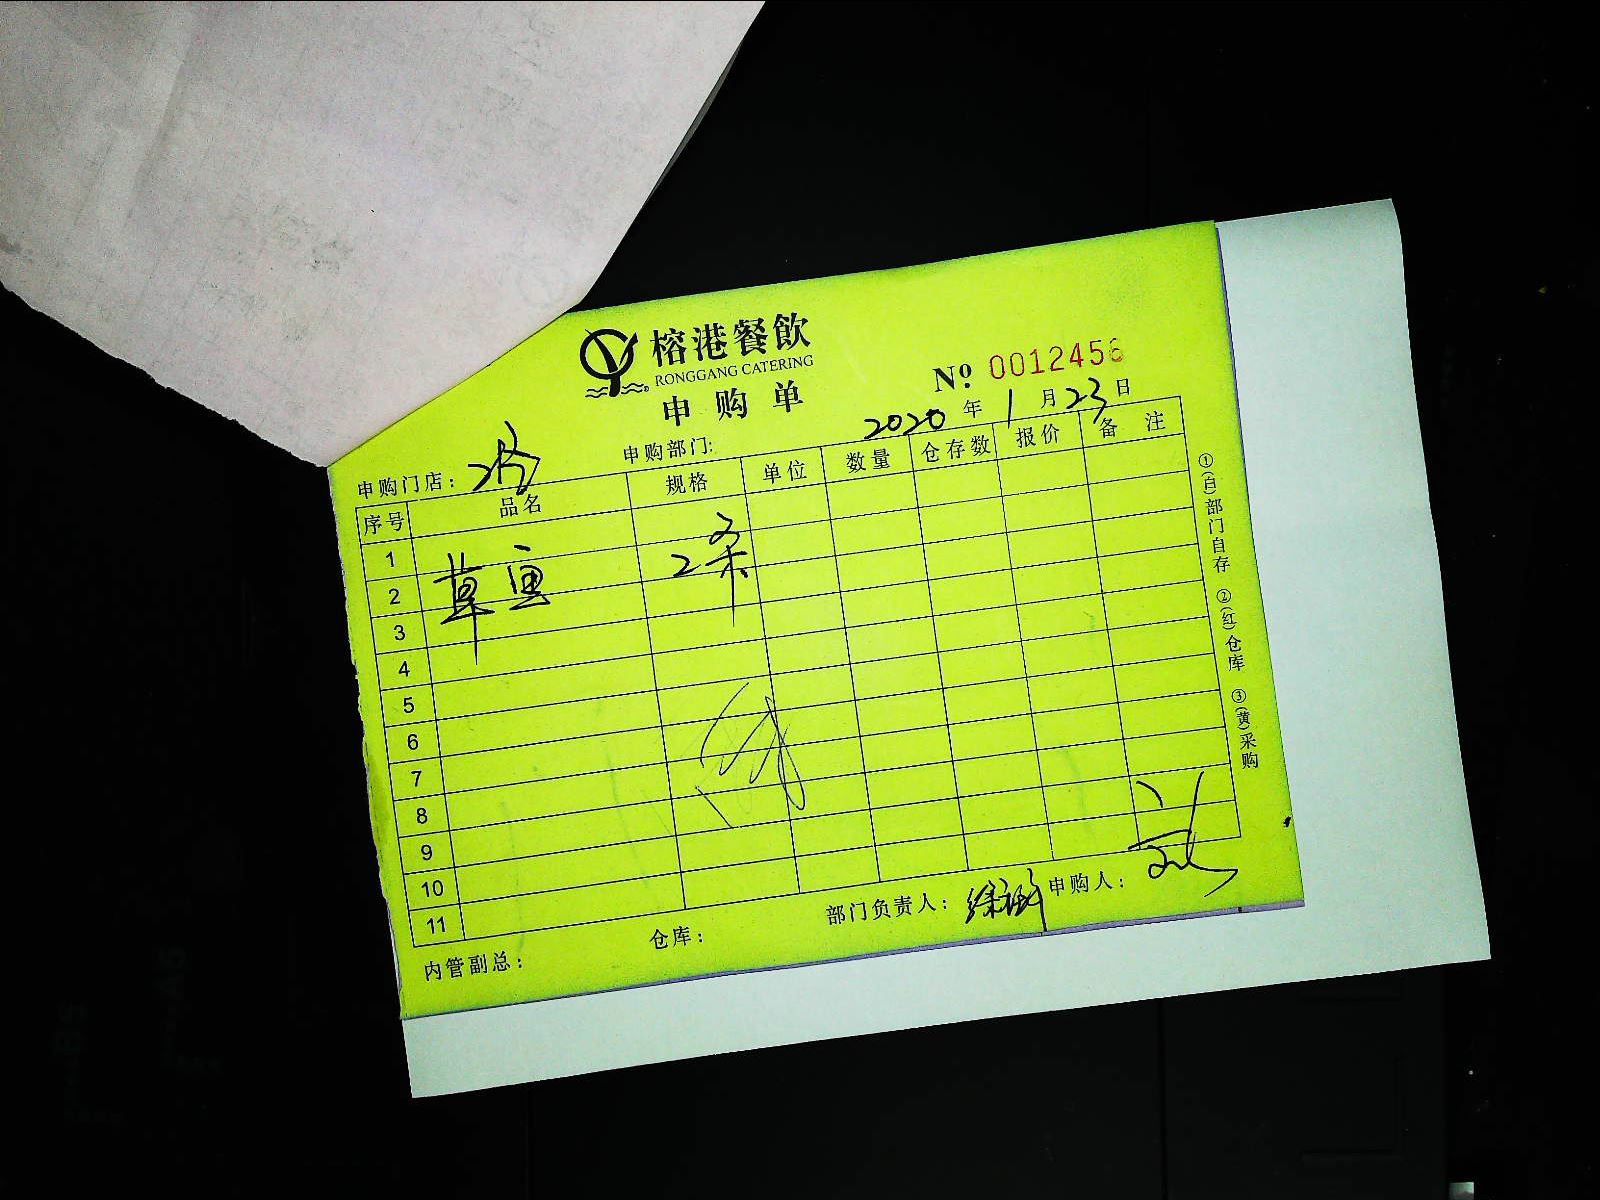 榕港餐飲
RONGGANG CATERING
申购单
Nº 0012456
2020年1月23日
申购门店：
申购部门:
序号 品名 规格 单位 数量 仓存数 报价 备注
1
2 草鱼 2条
3
4
5
6
7
8
9
10
11
内管副总：
仓库：
部门负责人：
申购人：刘
①(白)部门自存 ②(红)仓库 ③(黄)采购